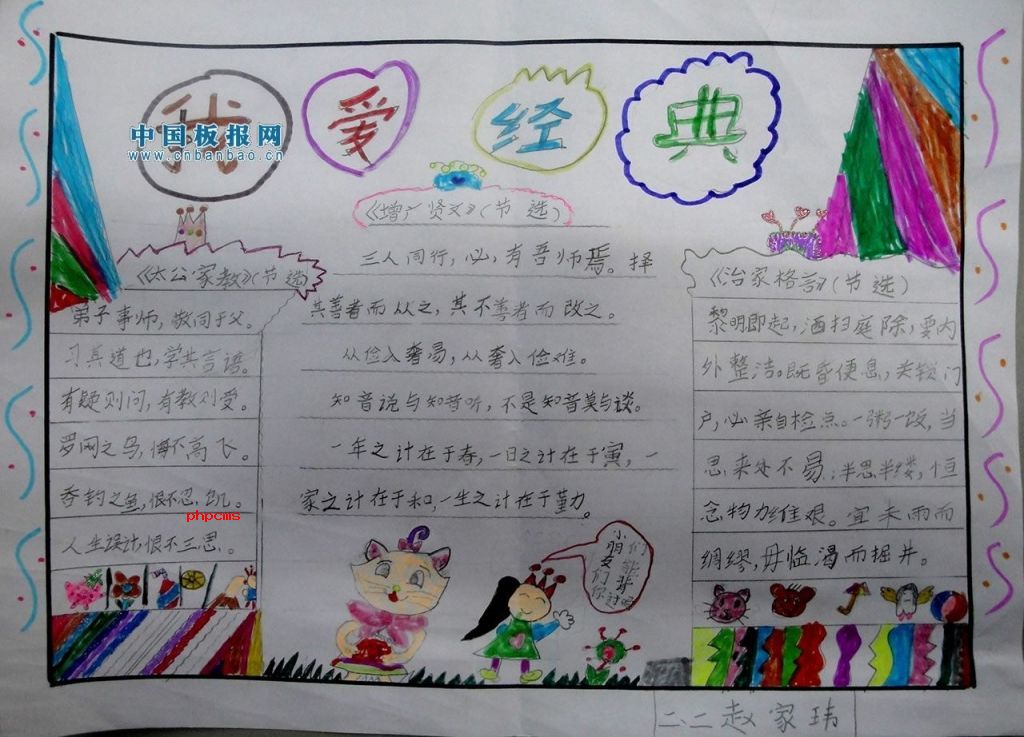 我爱经典
中国板报网
www.cnbanbao.cn
《太公家教》(节选)
弟子事师，敬同于父。
习其道也，学其言语。
有疑则问，有教则受。
罗网之鸟，悔不高飞。
吞钓之鱼，恨不忍饥。
人生误计恨不三思。
phpcms
《增广贤文》(节选)
三人同行，必有吾师焉。择
其善者而从之，其不善者而改之。
从俭入奢易，从奢入俭难。
知音说与知音听，不是知音莫与谈。
一年之计在于春，一日之计在于寅，一
家之计在于和，一生之计在于勤。
《治家格言》(节选)
黎明即起，洒扫庭除，要内
外整洁。既昏便息，关锁门
户，必亲自检点。一粥一饭，当
思来处不易；半思半缕，恒
念物力维艰。宜未雨而
绸缪，毋临渴而掘井。
小朋友们
二、二赵家玮